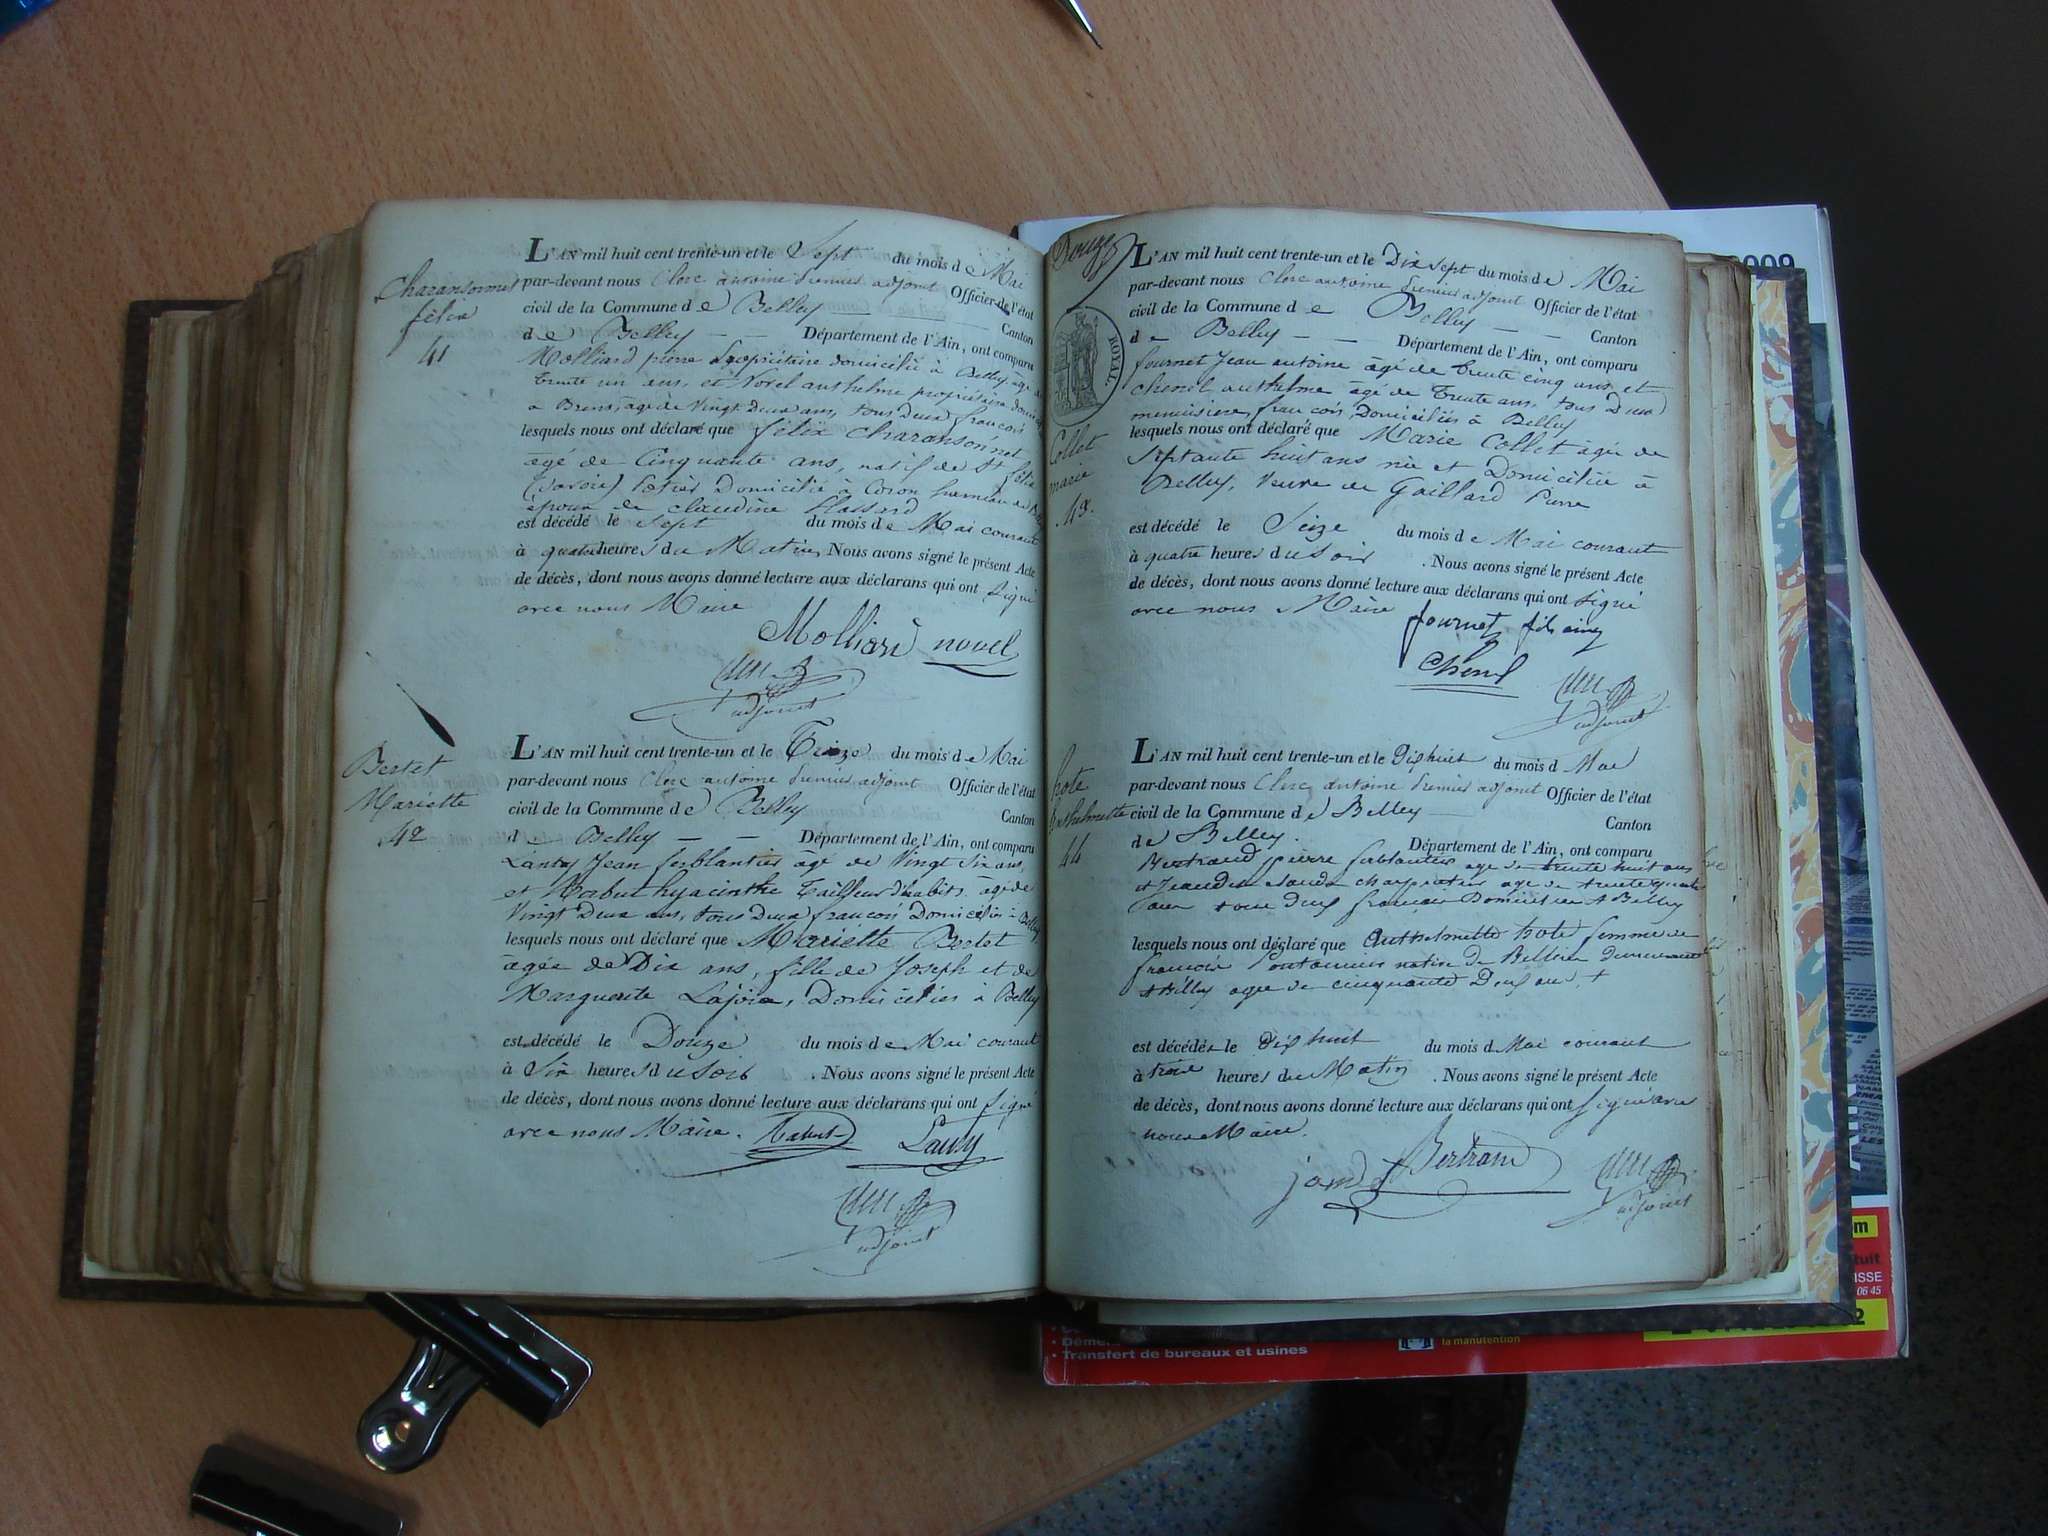 Charansonnet
félix
41
L'AN mil huit cent trente-un et le Sept du mois de Mai
par-devant nous Clerc antoine Premier adjoint Officier de l'état
civil de la Commune de Belley Canton
de Belley Département de l'Ain, ont comparu
Molliard pierre propriétaire domicilié à Belley âgé de
trente un ans, et Novel anthelme propriétaire
à Brens, âgé de Vingt Deux ans, tous Deux françois
lesquels nous ont déclaré que félix Charansonnet
âgé de Cinquante ans, natif de St félix
(Savoie) Domicilié à Coron hameau de
époux de claudine
est décédé le Sept du mois de Mai courant
à quatre heures du Matin Nous avons signé le présent Acte
de décès, dont nous avons donné lecture aux déclarans qui ont Signé
avec nous Maire
Molliard novel
adjoint
Bertet
Mariette
42
L'AN mil huit cent trente-un et le Treize du mois de Mai
par-devant nous Clerc antoine Premier adjoint Officier de l'état
civil de la Commune de Belley Canton
de Belley Département de l'Ain, ont comparu
Lanty Jean ferblantier âgé de Vingt Six ans,
et hyacinthe Tailleur d'habits âgé de
Vingt Deux ans, tous Deux françois Domiciliés à Belley
lesquels nous ont déclaré que Mariette Bertet
âgée de Dix ans, fille de Joseph et de
Marguerite Lajoie, Domiciliés à Belley
est décédé le Douze du mois de Mai courant
à Six heures du Soir . Nous avons signé le présent Acte
de décès, dont nous avons donné lecture aux déclarans qui ont Signé
avec nous Maire.
Lanty
adjoint
Douze
ROYAL
Collet
marie
43.
L'AN mil huit cent trente-un et le Dix sept du mois de Mai
par-devant nous Clerc antoine Premier adjoint Officier de l'état
civil de la Commune de Belley Canton
de Belley Département de l'Ain, ont comparu
fournet Jean antoine âgé de trente cinq ans et
Chenel anthelme âgé de Trente ans, tous Deux
menuisiers, françois, Domiciliés à Belley
lesquels nous ont déclaré que Marie Collet âgée de
Septante huit ans née et Domiciliée à
Belley, Veuve de Gaillard Pierre
est décédé le Seize du mois de Mai courant
à quatre heures du soir . Nous avons signé le présent Acte
de décès, dont nous avons donné lecture aux déclarans qui ont Signé
avec nous Maire
fournet fils
Chenel
adjoint
hote
anthelmette
44
L'AN mil huit cent trente-un et le Dix huit du mois d Mai
par-devant nous Clerc antoine Premier adjoint Officier de l'état
civil de la Commune de Belley Canton
de Belley. Département de l'Ain, ont comparu
Bertrand pierre ferblantier age de trente huit ans
et charpentier age de trente quatre
ans tous deux français Domiciliés A Belley
lesquels nous ont déclaré que Anthelmette hote femme de
françois native de demeurant
A Belley agee de cinquante Deux ans
est décédée le Dix huit du mois d Mai courant
à trois heures du Matin . Nous avons signé le présent Acte
de décès, dont nous avons donné lecture aux déclarans qui ont Signé avec
nous Maire.
Bertrand
adjoint
• Transfert de bureaux et usines
la manutention